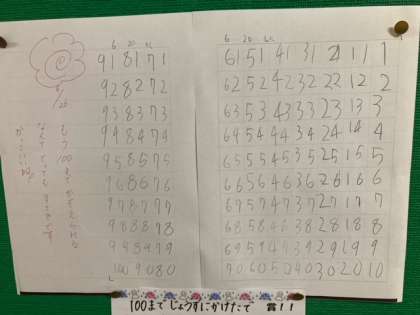 91 81 71
92 82 72
93 83 73
94 84 74
95 85 75
96 86 76
97 87 77
98 88 78
99 89 79
100 90 80
もう100までかぞえられる
なんてとってもすごいです
かっこいいね
61 51 41 31 21 11 1
62 52 42 32 22 12 2
63 53 43 33 23 13 3
64 54 44 34 24 14 4
65 55 45 35 25 15 5
66 56 46 36 26 16 6
67 57 47 37 27 17 7
68 58 48 38 28 18 8
69 59 49 39 29 19 9
70 60 50 40 30 20 10
100まで じょうずにかけたで 賞!!